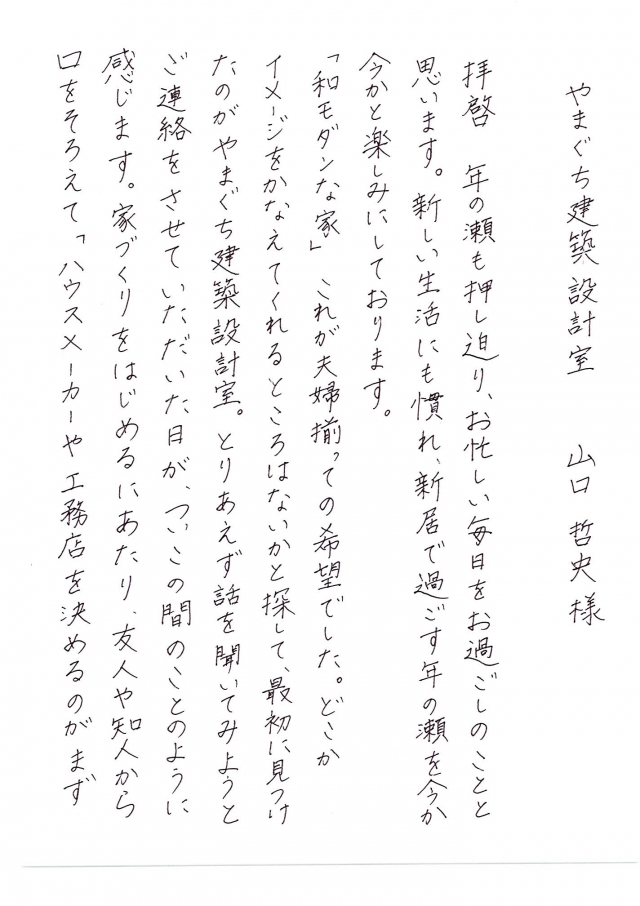 やまぐち建築設計室　山口 哲史様
拝啓　年の瀬も押し迫り、お忙しい毎日をお過ごしのことと
思います。新しい生活にも慣れ、新居で過ごす年の瀬を今か
今かと楽しみにしております。
「和モダンな家」　これが夫婦揃っての希望でした。どこか
イメージをかなえてくれるところはないかと探して、最初に見つけ
たのがやまぐち建築設計室。とりあえず話を聞いてみようと
ご連絡をさせていただいた日が、ついこの間のことのように
感じます。家づくりをはじめるにあたり、友人や知人から
口をそろえて「ハウスメーカーや工務店を決めるのがまず